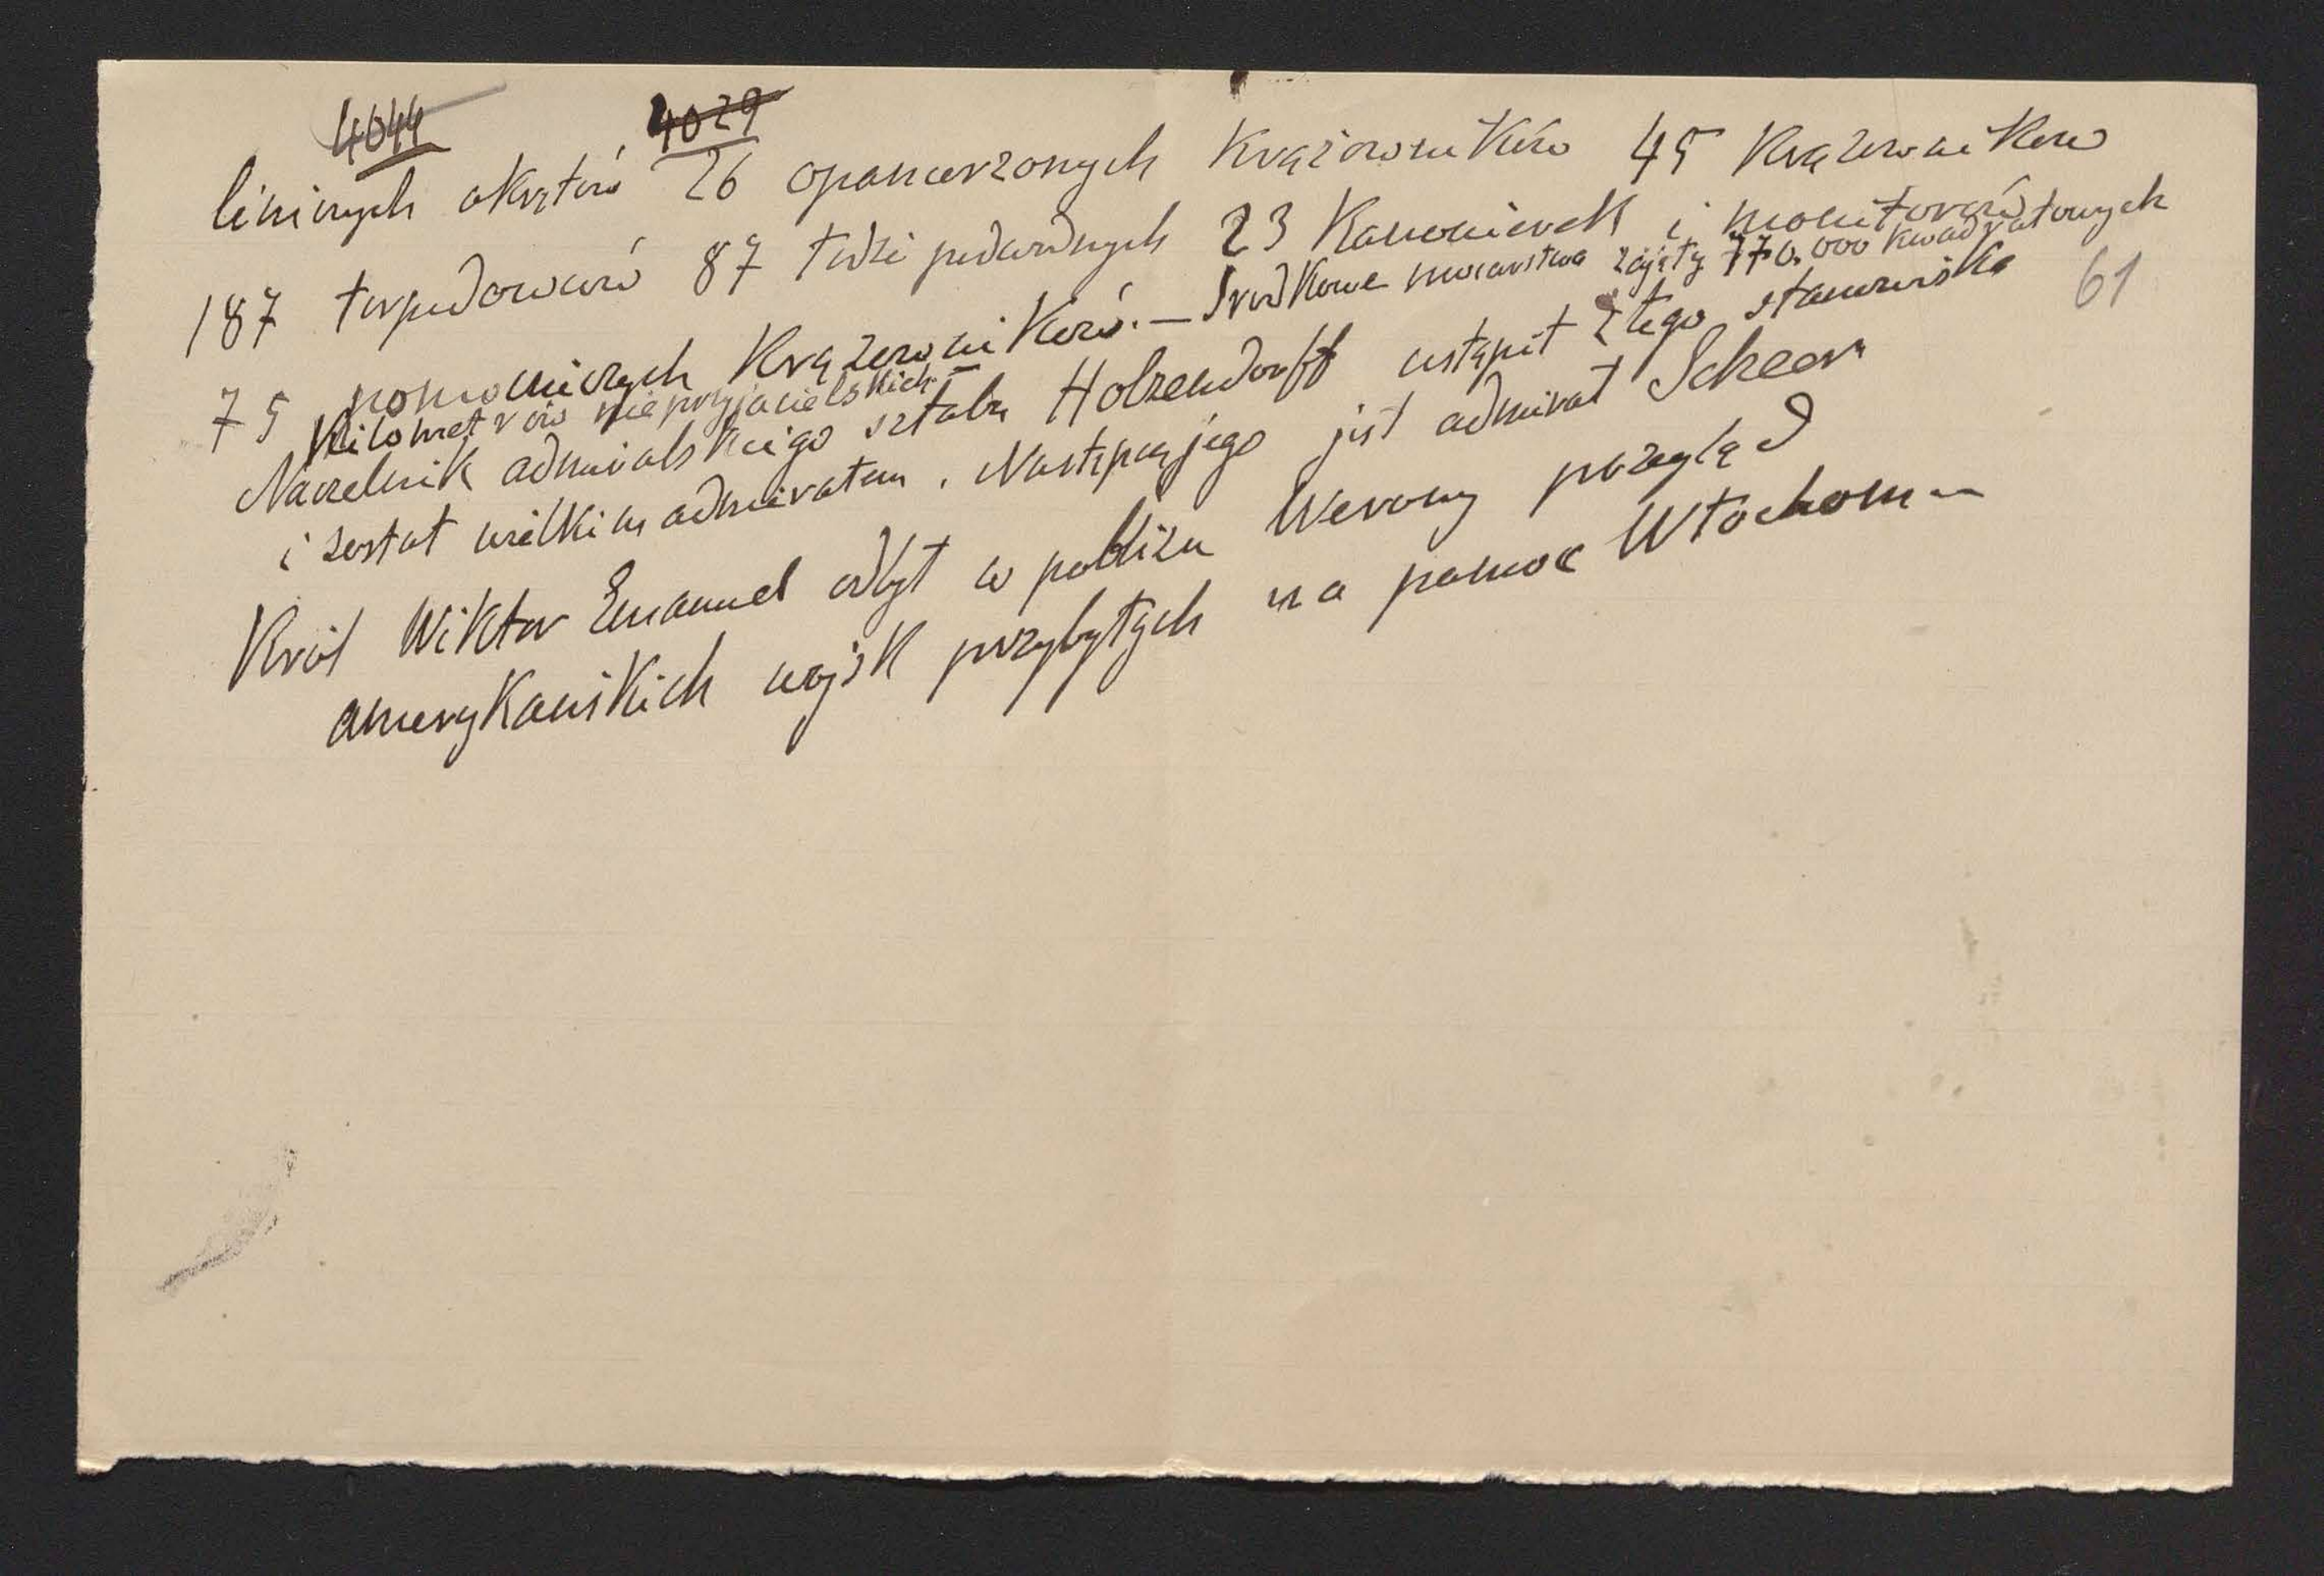 4044
4029
liniinych okrętów 26 opancerzonych krążowników 45 krążowników
187 torpedowców 87 łodzi podwodnych 23 kanonierek i monitorów
75 pomocniczych krążowników. — Środkowe mocarstwa zajęły 770.000 kwadratowych
kilometrów nieprzyjacielskich. —
61
Naczelnik admiralskiego sztabu Holzendorff ustąpił z tego stanowiska
i został wielkim admirałem. Następcą jego jest admirał Scheer
Król Wiktor Emanuel odbył w pobliżu Werony przegląd
amerykańskich wojsk przybyłych na pomoc Włochom —